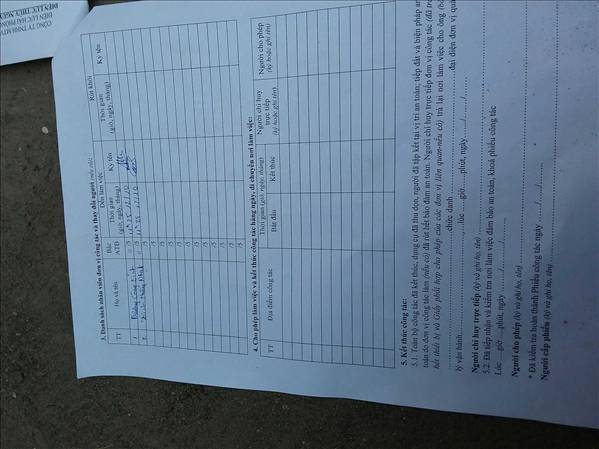 CÔNG TY TNHH MTV
ĐIỆN LỰC HẢI PHÒNG
3. Danh sách nhân viên đơn vị công tác và thay đổi người (nếu có):
TT
Họ và tên
Bậc ATĐ
Đến làm việc
Thời gian (giờ, ngày, tháng)
Ký tên
Rút khỏi
Thời gian (giờ, ngày, tháng)
Ký tên
1
/5
2
/5
/5
/5
/5
/5
/5
/5
/5
/5
4. Cho phép làm việc và kết thúc công tác hàng ngày, di chuyển nơi làm việc:
TT
Địa điểm công tác
Thời gian (giờ, ngày, tháng)
Bắt đầu
Kết thúc
Người chỉ huy trực tiếp
(ký hoặc ghi tên)
Người cho phép
(ký hoặc ghi tên)
5. Kết thúc công tác:
5.1. Toàn bộ công tác đã kết thúc, dụng cụ đã thu dọn, người đã tập kết tại vị trí an toàn; tiếp đất và biện pháp an
toàn do đơn vị công tác làm (nếu có) đã rút hết bảo đảm an toàn. Người chỉ huy trực tiếp đơn vị công tác (đã tr
hết thiết bị và Giấy phối hợp cho phép của các đơn vị liên quan-nếu có) trả lại nơi làm việc cho ông (b
chức danh đại diện đơn vị qu
lý vận hành, lúc giờ phút, ngày / /
Người chỉ huy trực tiếp (ký và ghi họ, tên)
5.2. Đã tiếp nhận và kiểm tra nơi làm việc đảm bảo an toàn, khoá phiếu công tác
Lúc giờ phút, ngày / /
Người cho phép (ký và ghi họ, tên)
* Đã kiểm tra hoàn thành Phiếu công tác ngày / /
Người cấp phiếu (ký và ghi họ, tên)